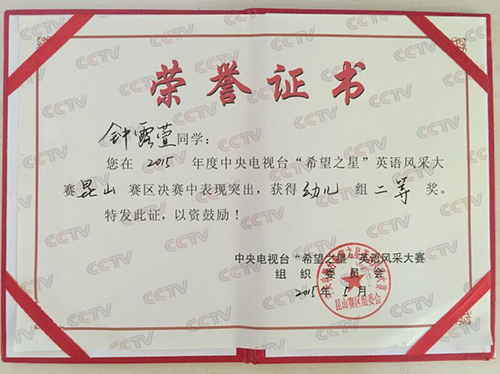 荣誉证书
钟露萱同学：
您在 2015 年度中央电视台“希望之星”英语风采大
赛 昆山 赛区决赛中表现突出，获得 幼儿 组 二等 奖。
特发此证，以资鼓励！
中央电视台“希望之星”英语风采大赛
组织委员会
2015年5月
昆山赛区组委会
CCTV